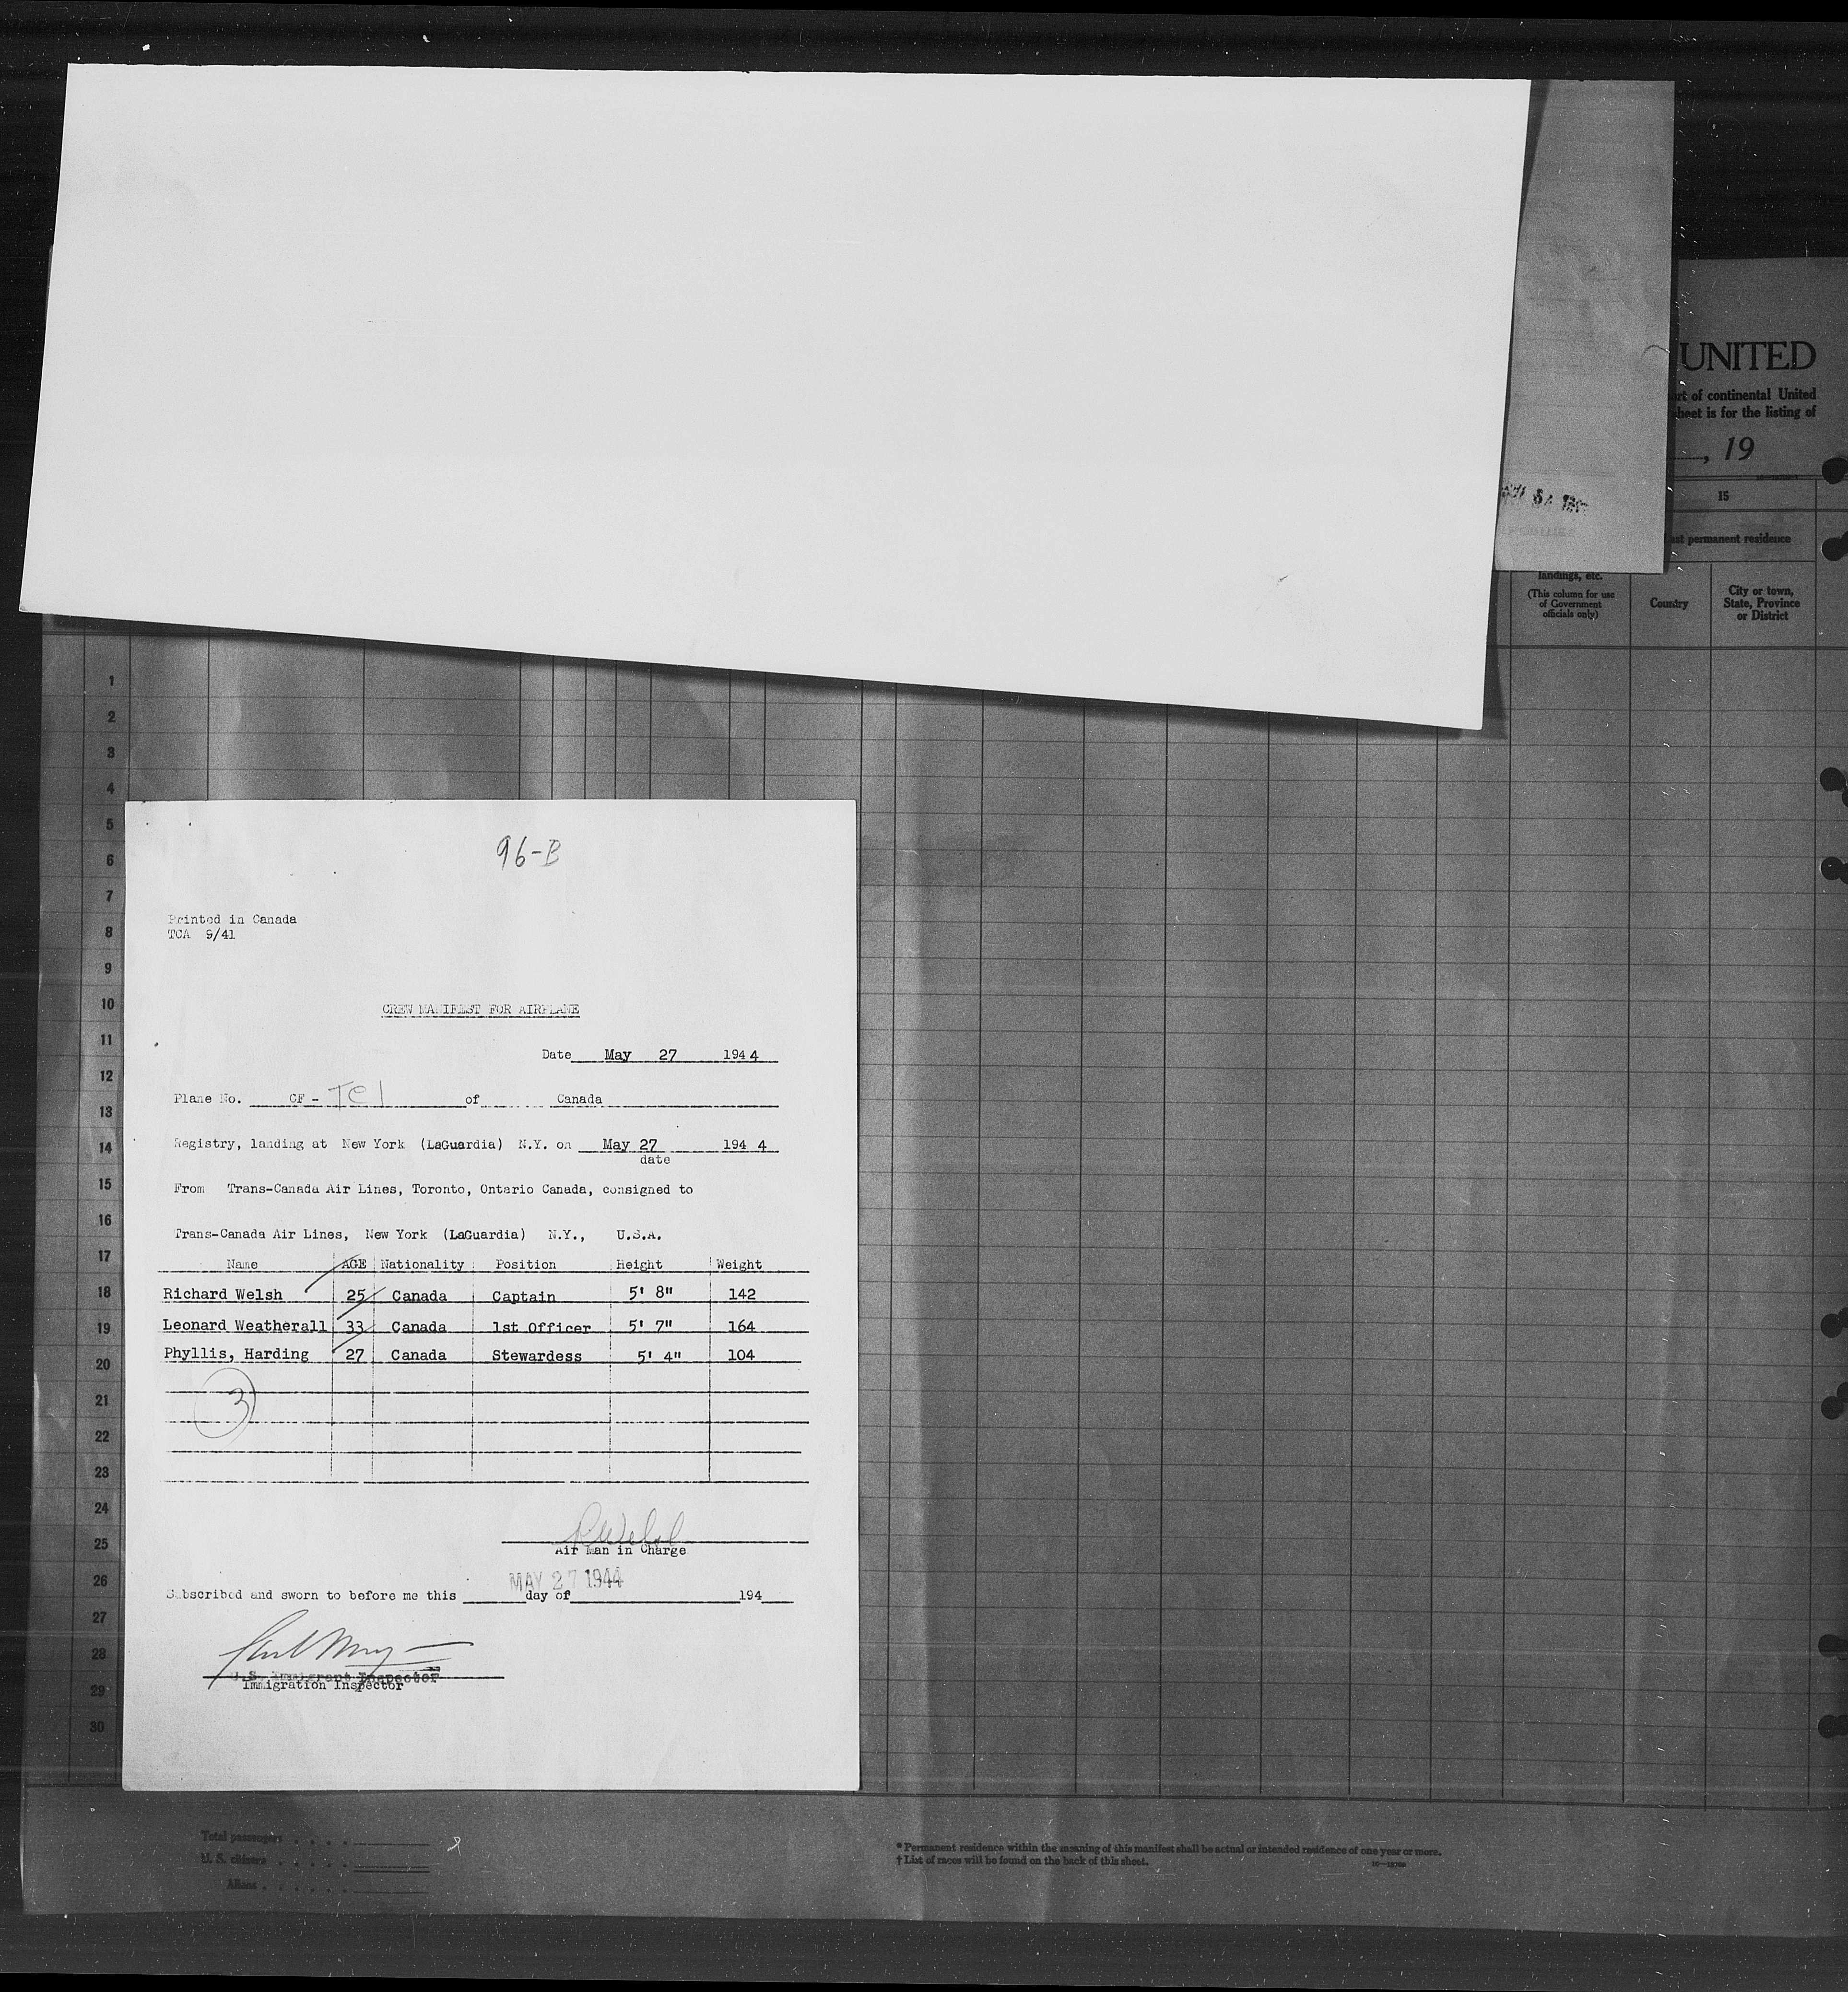 UNITED
of continental United
sheet is for the listing of
, 19
15
permanent residence
landings, etc.
(This column for use
of Government
officials only)
Country
City or town,
State, Province
or District
1
2
3
4
5
6
7
8
9
10
11
12
13
14
15
16
17
18
19
20
21
22
23
24
25
26
27
28
29
30
96-B
Printed in Canada
TCA 9/41
CREW MANIFEST FOR AIRPLANE
Date May 27 1944
Plane No. CF - TCI of Canada
Registry, landing at New York (LaGuardia) N.Y. on May 27 1944
date
From Trans-Canada Air Lines, Toronto, Ontario Canada, consigned to
Trans-Canada Air Lines, New York (LaGuardia) N.Y., U.S.A.
Name AGE Nationality Position Height Weight
Richard Welsh 25 Canada Captain 5' 8" 142
Leonard Weatherall 33 Canada 1st Officer 5' 7" 164
Phyllis, Harding 27 Canada Stewardess 5' 4" 104
3
RWelsh
Air Man in Charge
MAY 27 1944
Subscribed and sworn to before me this day of 194
U.S. Immigrant Inspector
Immigration Inspector
Total passengers . . . .
U. S. citizens . . . . .
Aliens . . . . . .
* Permanent residence within the meaning of this manifest shall be actual or intended residence of one year or more.
† List of races will be found on the back of this sheet.